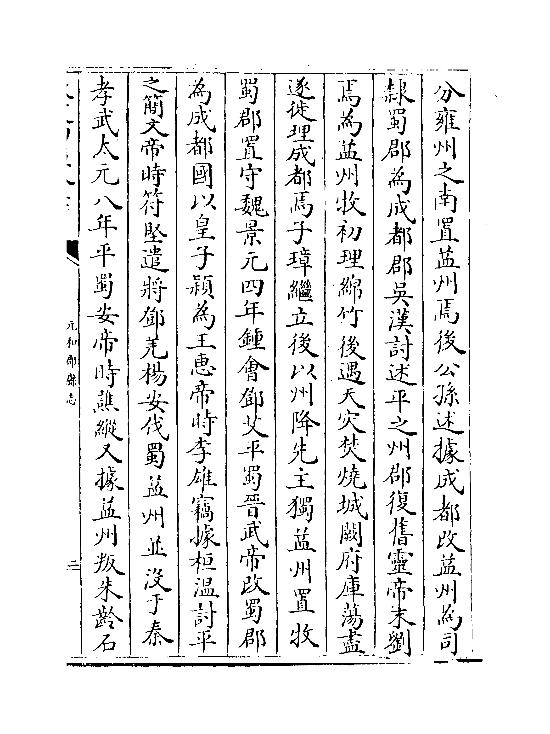 分雍州之南置益州焉後公孫述據成都改益州為司
隸蜀郡為成都郡吳漢討述平之州郡復舊靈帝末劉
焉為益州牧初理綿竹後遇天災焚燒城闕府庫蕩盡
遂徙理成都焉子璋繼立後以州降先主獨益州置牧
蜀郡置守魏景元四年鍾會鄧艾平蜀晉武帝改蜀郡
為成都國以皇子穎為王惠帝時李雄竊據桓溫討平
之簡文帝時符堅遣將鄧羌楊安伐蜀益州並沒于秦
孝武太元八年平蜀安帝時譙縱又據益州叛朱齡石
元和郡縣志
二